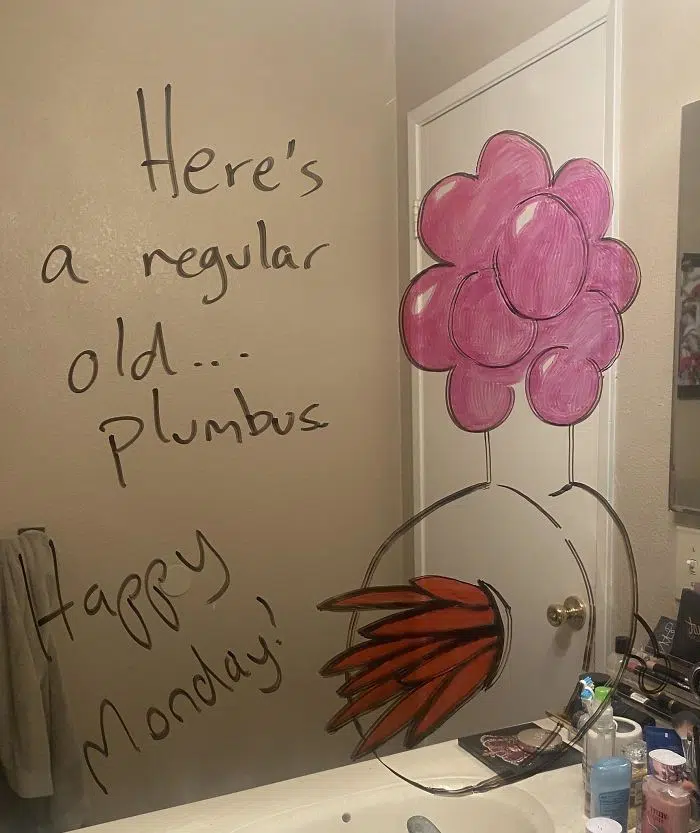 Here's
a regular
old...
plumbus
Happy
Monday!